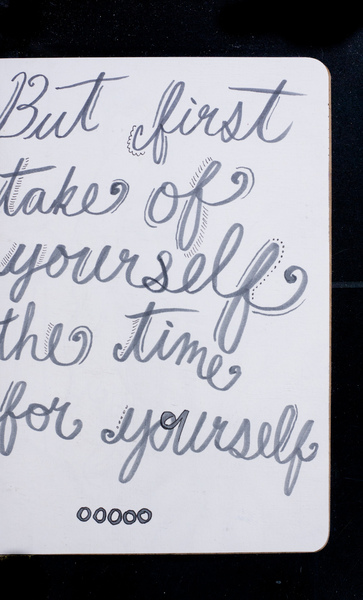 But first
take of
yourself
the time
for yourself